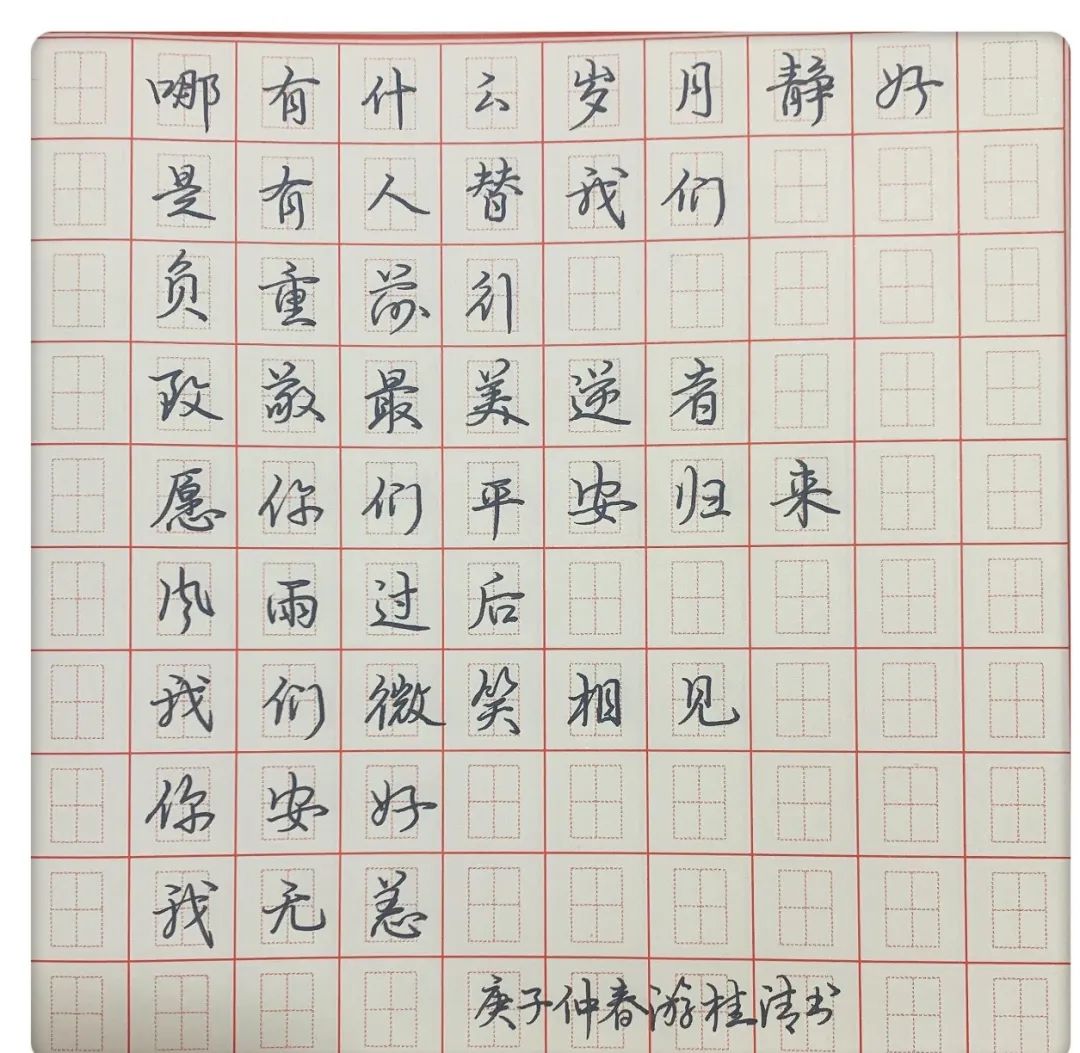 哪有什么岁月静好
是有人替我们
负重前行
致敬最美逆者
愿你们平安归来
风雨过后
我们微笑相见
你安好
我无恙
庚子仲春游桂清书